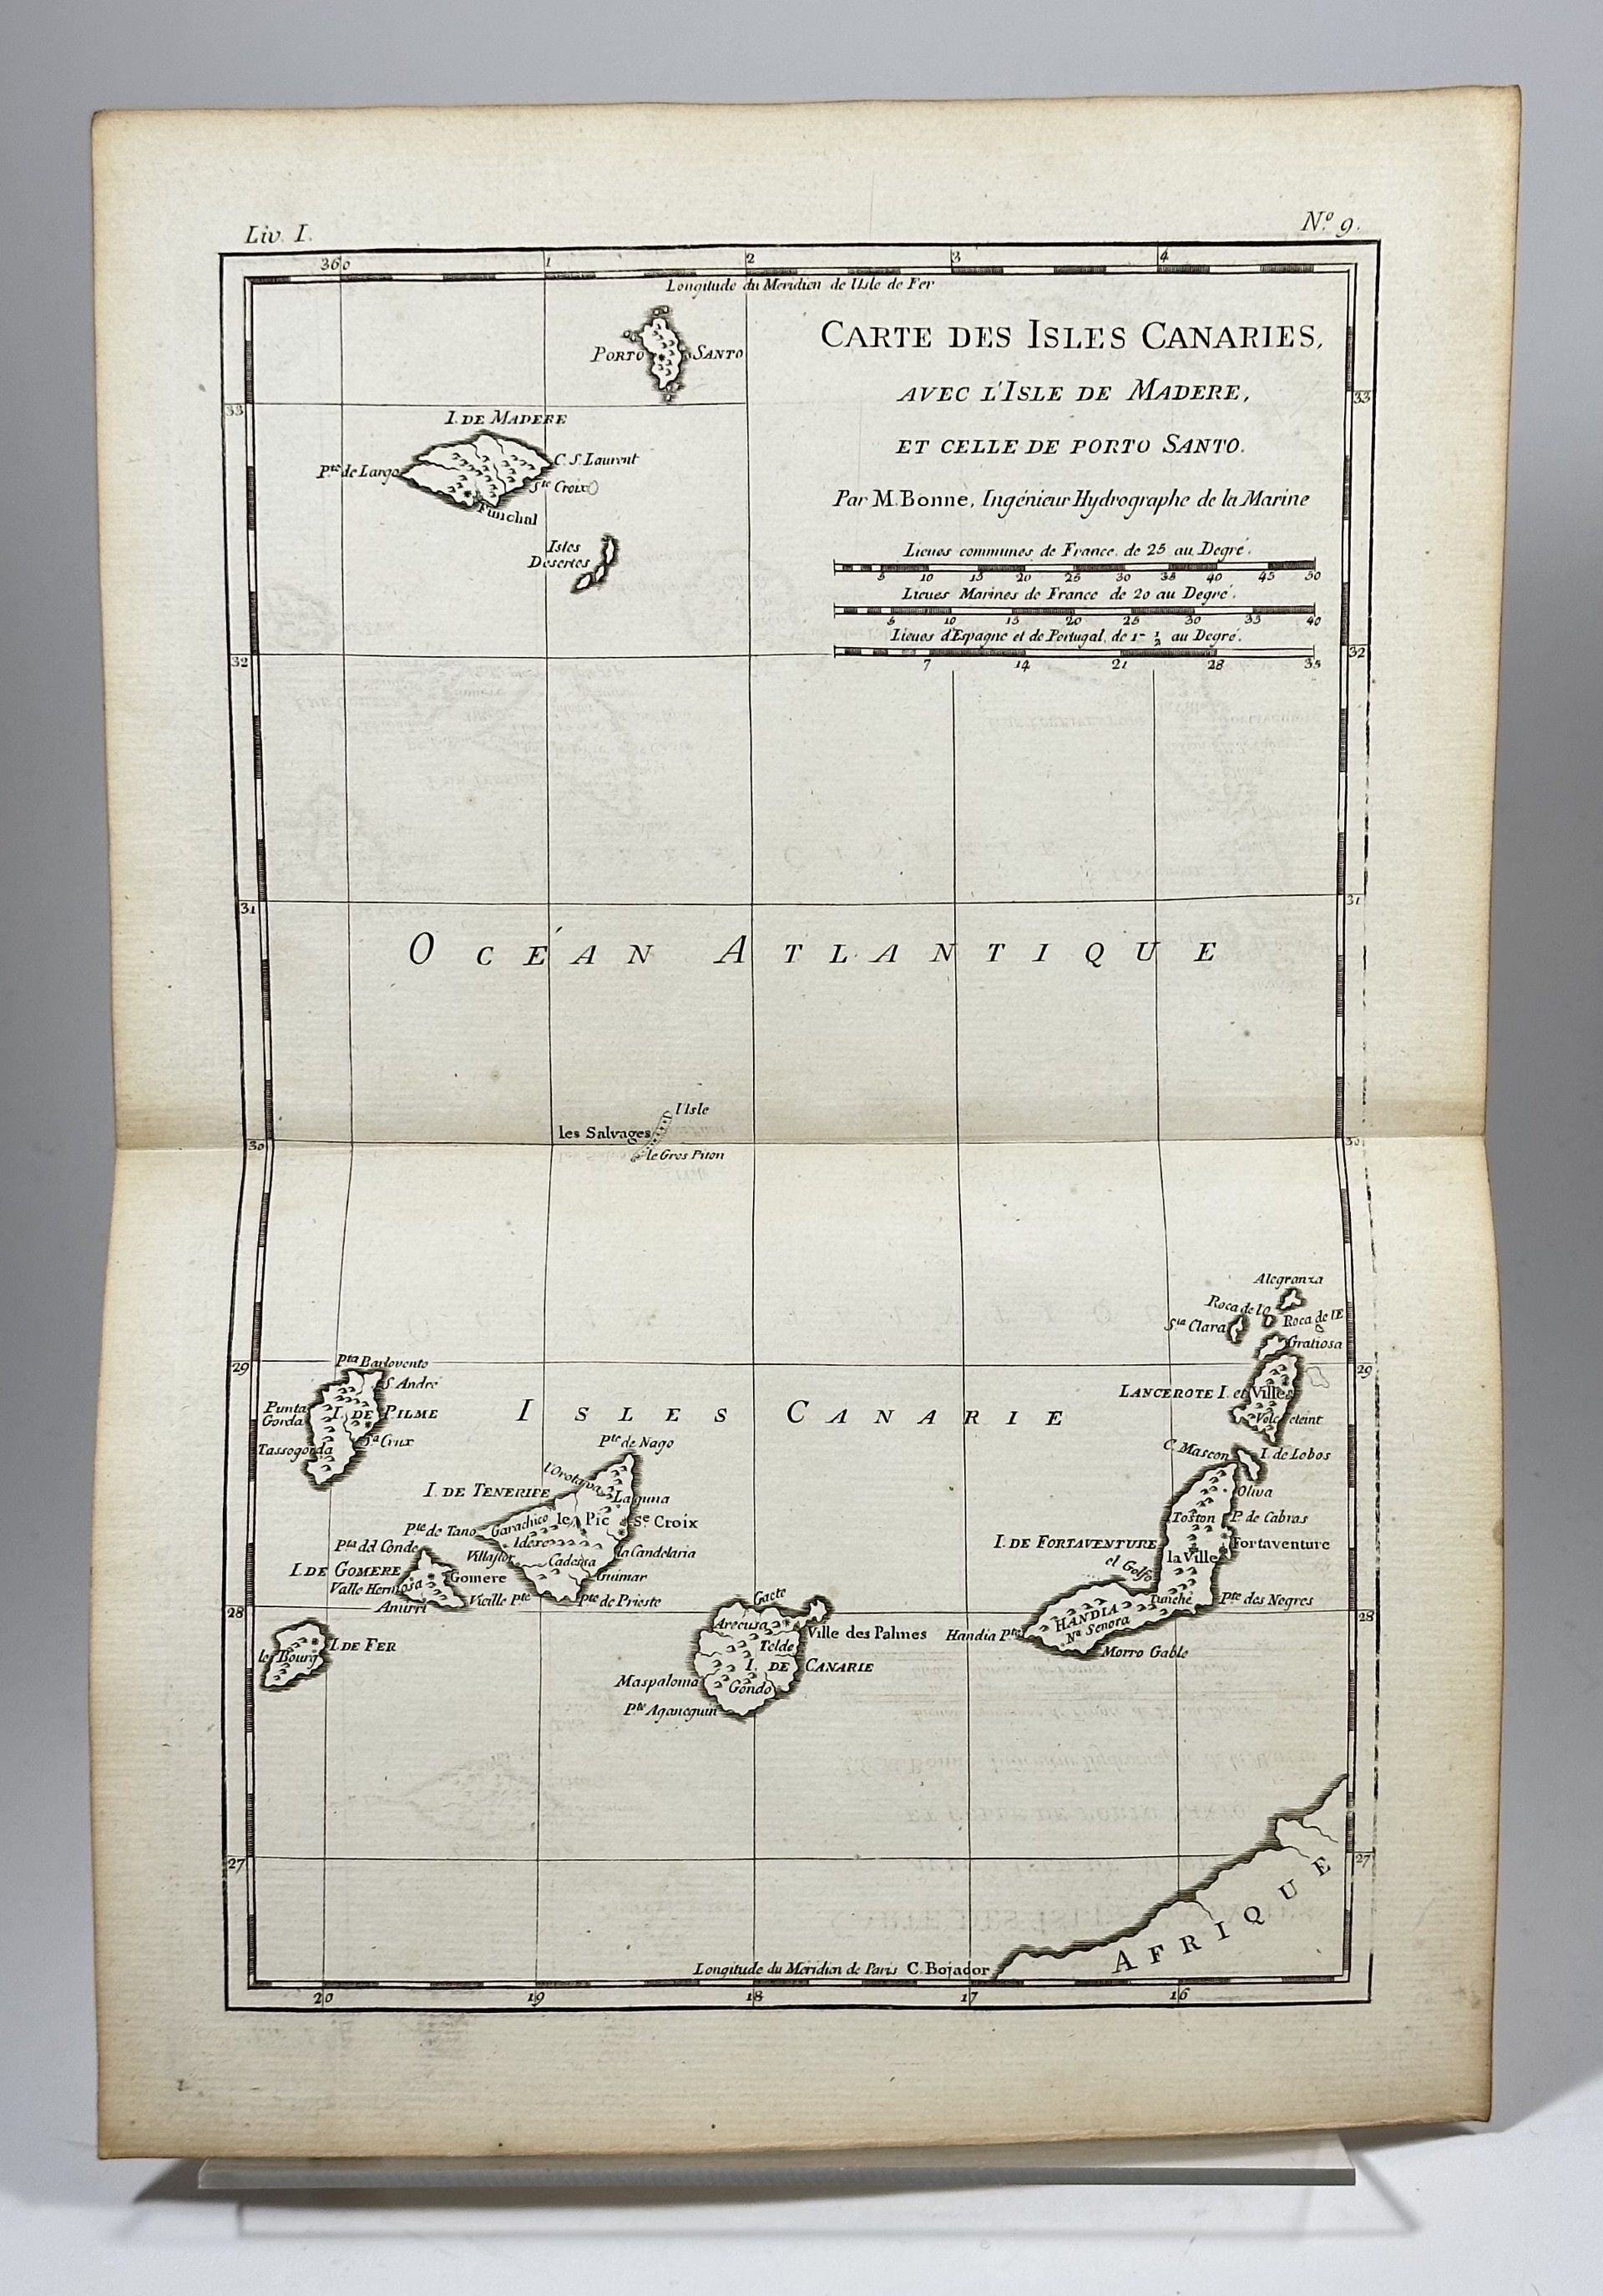 Liv. I.
N.º 9.
360 1 2 3 4
Longitude du Meridien de l'Isle de Fer
CARTE DES ISLES CANARIES,
AVEC L'ISLE DE MADERE,
ET CELLE DE PORTO SANTO.
Par M. Bonne, Ingénieur Hydrographe de la Marine
Lieues communes de France de 25 au Degré.
5 10 15 20 25 30 35 40 45 50
Lieues Marines de France de 20 au Degré.
5 10 15 20 25 30 35 40
Lieues d'Espagne et de Portugal, de 1- ½ au Degré.
7 14 21 28 35
PORTO SANTO
33 33
I. DE MADERE
Pte de Largo
C. S. Laurent
Ste Croix
Funchal
Isles
Desertes
32 32
31 31
OCÉAN ATLANTIQUE
l'Isle
les Salvages
le Gros Piton
30 30
Alegranza
Roca de lO
Roca de lE
Sta Clara
Gratiosa
29 29
LANCEROTE I. et Ville
Volc eteint
C. Mascon
I. de Lobos
Oliva
Toston
P. de Cabras
I. DE FORTAVENTURE
Fortaventure
la Ville
el Golfo
Tunché
Pte des Negres
HANDIA
Na Senora
Handia Pte
Morro Gable
ISLES CANARIE
Pta Barlovento
S. André
Punta
Gorda
I. DE PILME
Sa Crux
Tassogorda
Pte de Nago
l'Orotava
I. DE TENERIFE
Laguna
Pte de Tano
Garachico
le Pic
Se Croix
Idexe
Villaflor
Cadessa
la Candelaria
Guimar
Vieille Pte
Pte de Prieste
Pta del Conde
I. DE GOMERE
Gomere
Valle Hermosa
Amirri
28 28
I. DE FER
le Bourg
Gaete
Arecusa
Ville des Palmes
Telde
I. DE CANARIE
Maspaloma
Gondo
Pte Aganeguin
27 27
AFRIQUE
Longitude du Meridien de Paris
C. Bojador
20 19 18 17 16